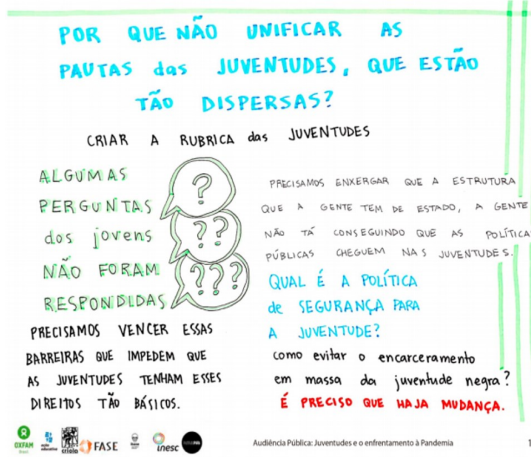 POR QUE NÃO UNIFICAR AS
PAUTAS das JUVENTUDES, QUE ESTÃO
TÃO DISPERSAS?
CRIAR A RUBRICA das JUVENTUDES
ALGUMAS
PERGUNTAS
dos jovens
NÃO FORAM
RESPONDIDAS
?
??
???
PRECISAMOS VENCER ESSAS
BARREIRAS QUE IMPEDEM QUE
AS JUVENTUDES TENHAM ESSES
DIREITOS TÃO BÁSICOS.
PRECISAMOS ENXERGAR QUE A ESTRUTURA
QUE A GENTE TEM DE ESTADO, A GENTE
NÃO TÁ CONSEGUINDO QUE AS POLÍTICA
PÚBLICAS CHEGUEM NAS JUVENTUDES.
QUAL É A POLÍTICA
de SEGURANÇA PARA
A JUVENTUDE?
como evitar o encarceramento
em massa da juventude negra?
É PRECISO QUE HAJA MUDANÇA.
OXFAM
Brasil
criola
FASE
inesc
Audiência Pública: Juventudes e o enfrentamento à Pandemia